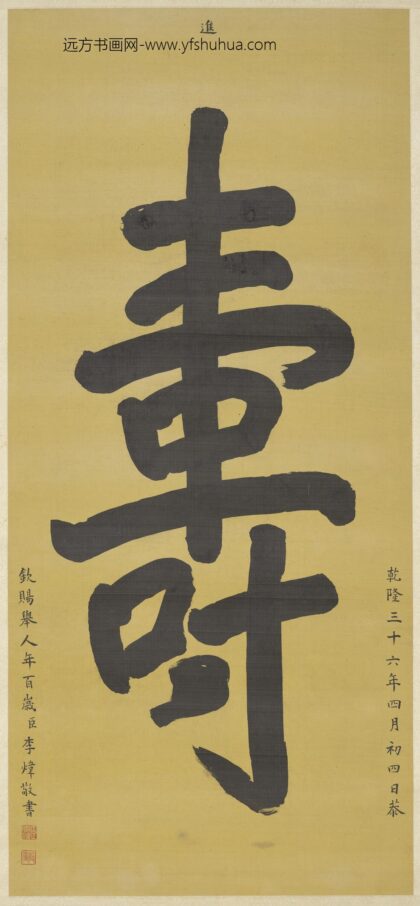 進
远方书画网-www.yfshuhua.com
壽
乾隆三十六年四月初四日恭
欽賜舉人年百歲臣李煒敬書